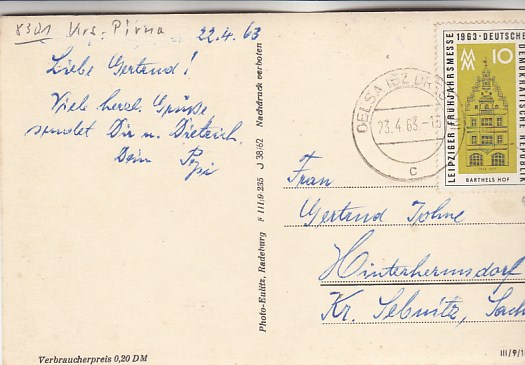 8301 Krs. Pirna
22.4.63
Liebe Gertrud!
Viele herzl. Grüße
sendet Dir u. Dietrich
Dein
Photo-Eulitz, Radeburg F III/9/235 J 38/62 Nachdruck verboten
OELSA
23.4.63
c
LEIPZIGER FRÜHJAHRSMESSE 1963 · DEUTSCHE DEMOKRATISCHE REPUBLIK
MM 10
BARTHELS HOF
Frau
Gertrud
Hinterhermsdorf
Kr. Sebnitz, Sach
Verbraucherpreis 0,20 DM
III/9/1